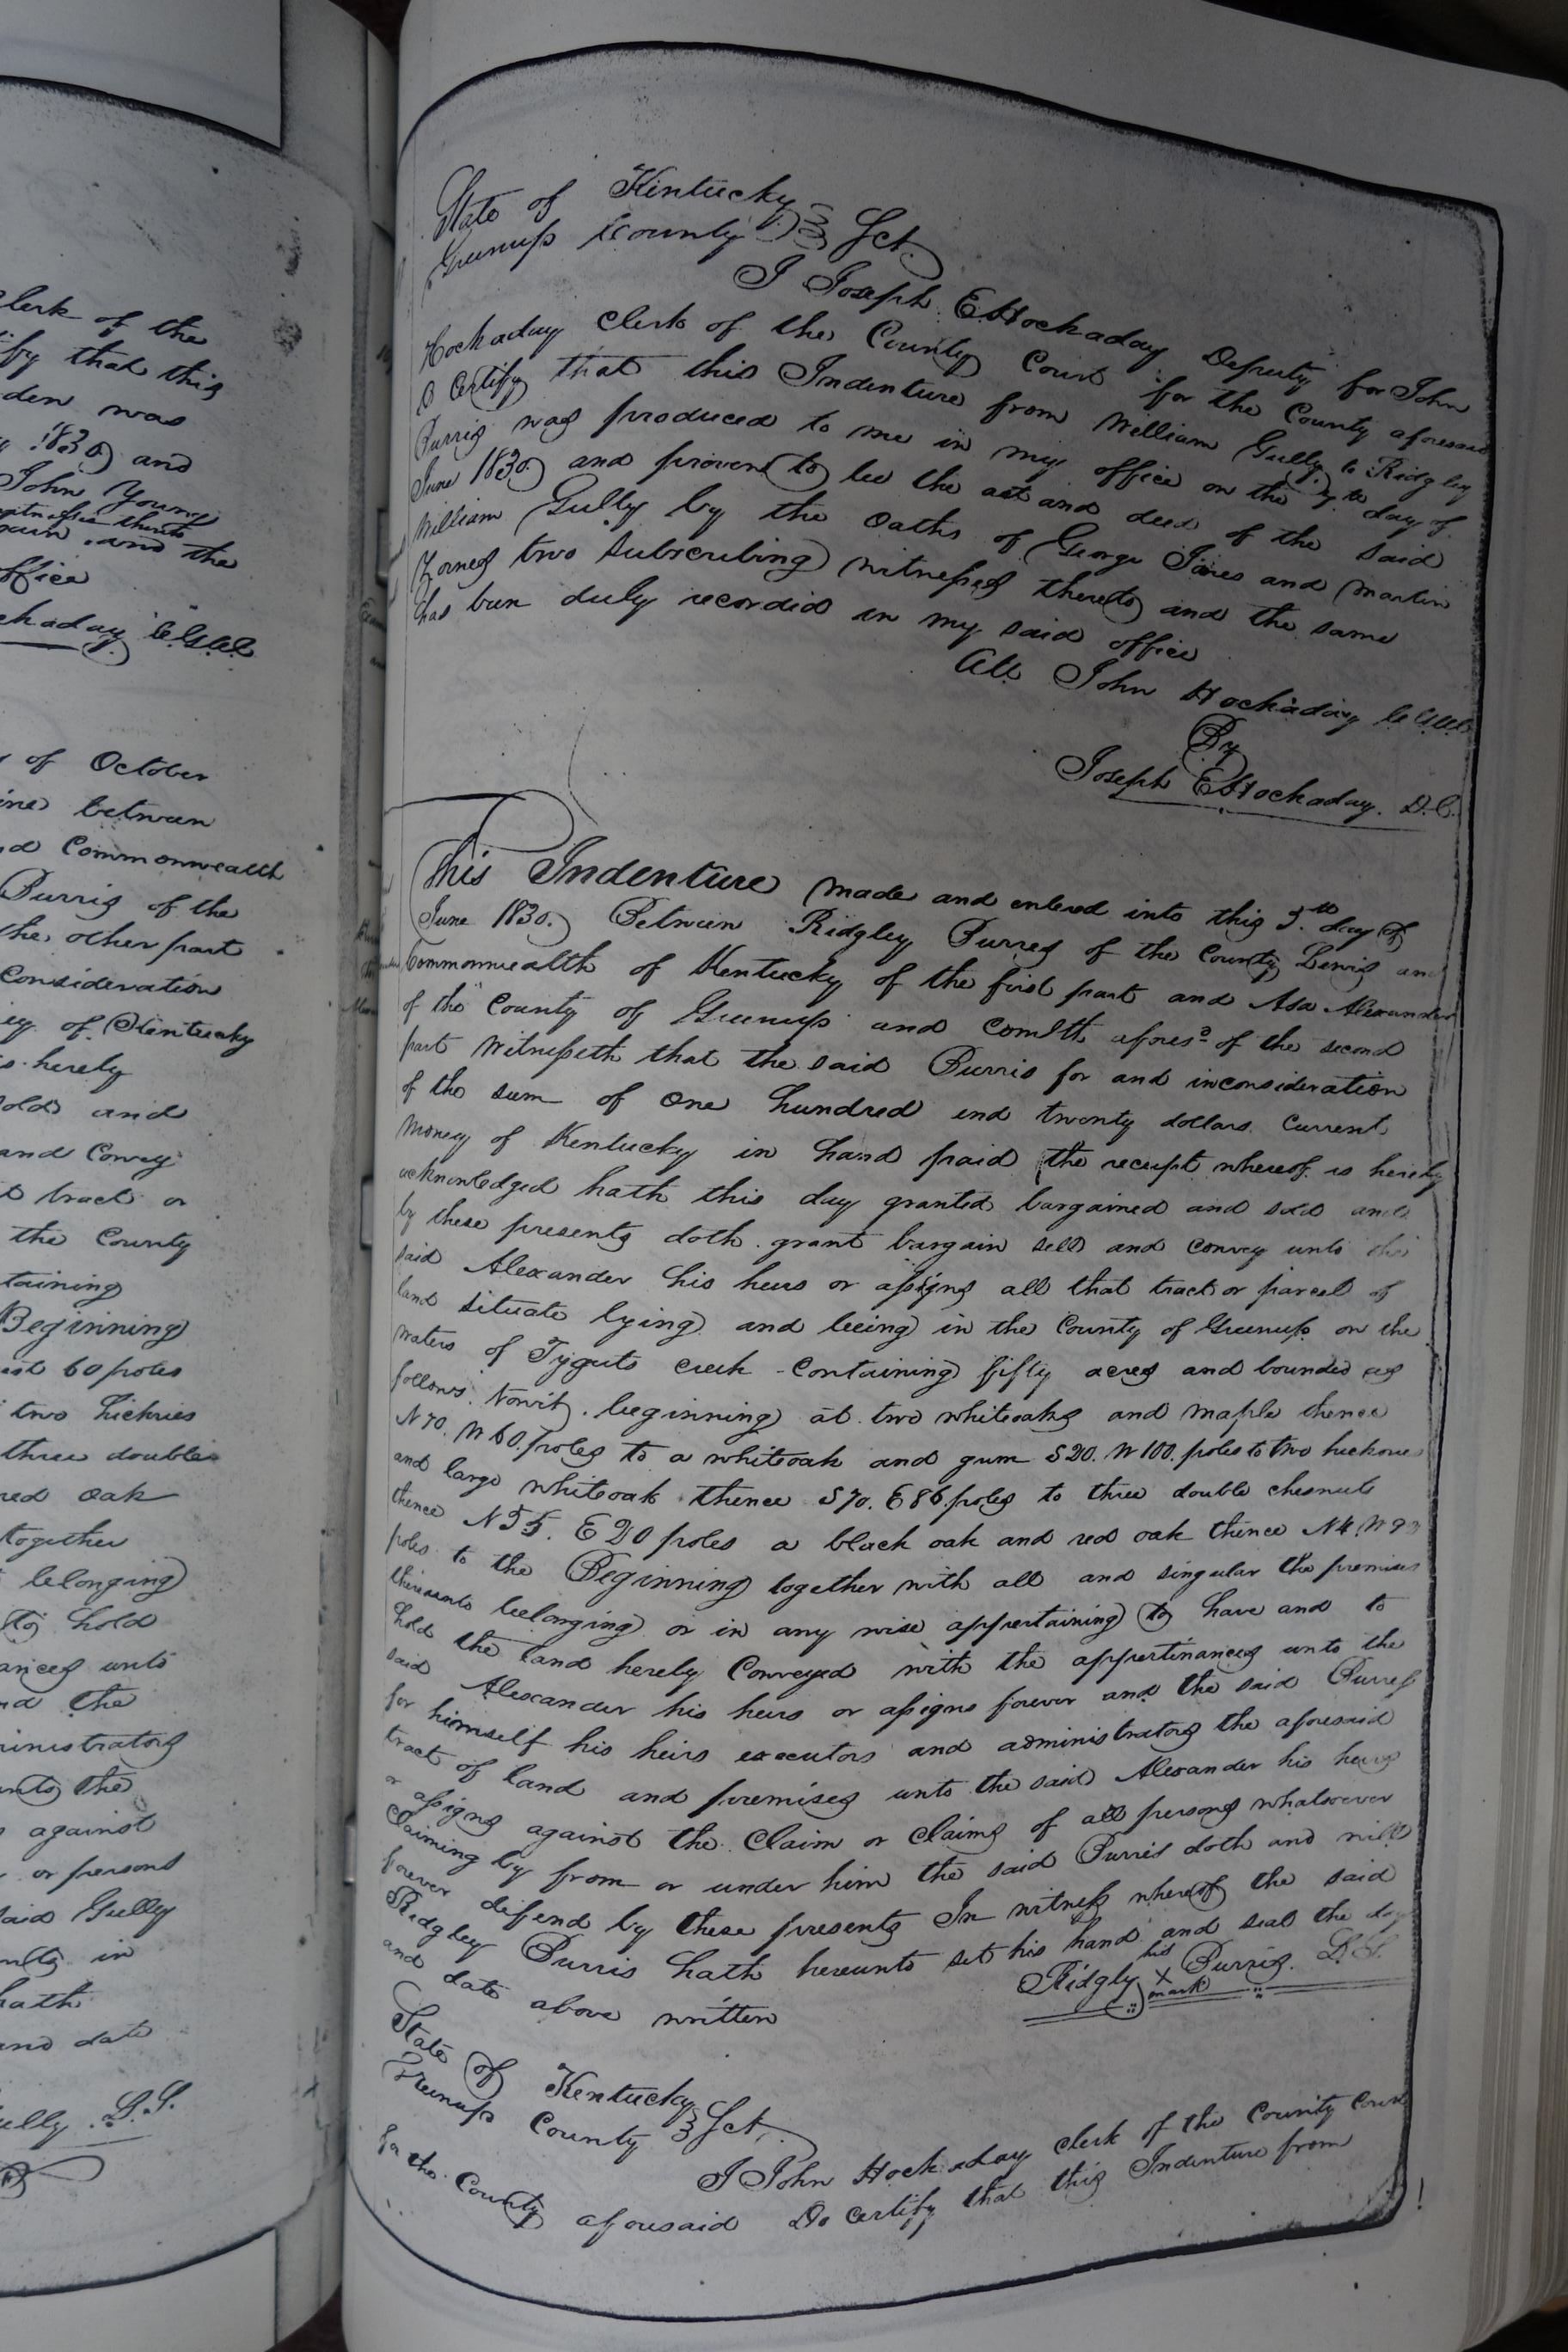 clerk of the
ify that this
den was
1830) and
John Young
witnesses thereto
and the
office
ckaday
of October
between
d Commonwealth
Purris of the
the other part
consideration
of Kentucky
s hereby
sold and
and Convey
t tract or
the County
taining
Beginning
60 poles
two hickries
three double
red oak
together
belonging
to hold
ances unto
nd the
ministrators
unto the
s against
or persons
said Gully
in
hath
and date
ully L.S.
State of Kentucky
Greenup County } Sct.
I Joseph E Hockaday Deputy for John
Hockaday Clerk of the County Court for the County aforesaid
D Certify that this Indenture from William Gully to Ridgley
Purris was produced to me in my office on the day of
June 1830. and proven to bee the act and deed of the said
William Gully by the oaths of George and Martin
two subscribing witnesses thereto and the same
has bun duly recordid in my said office
Att John Hockaday
By
Joseph E Hockaday. D.C.
This Indenture made and entered into this 5th day of
June 1830. Between Ridgley Purres of the County Lewis and
Commonwealth of Kentucky of the first part and Asa Alexander
of the County of Greenup and Comlth afores.d of the second
part Witnesseth that the said Purris for and inconsideration
of the sum of One hundred and twenty dollars Current
Money of Kentucky in hand paid the receipt whereof is hereby
acknowledged hath this day granted bargained and sold and
by these presents doth grant bargain sell and convey unto the
said Alexander his heirs or assigns all that tract or parcel of
land situate lying and beeing in the County of Greenup on the
waters of Tyguts creek Containing fifty acres and bounded as
follows. Towit. beginning at two whiteoaks and maple thence
N 70. W 60. poles to a whiteoak and gum S 20. W 100. poles to two hickories
and large whiteoak thence S 70. E 86. poles to three double chesnuts
thence N 55. E 20 poles a black oak and red oak thence N 4. W
poles to the Beginning together with all and singular the premises
thereunto belonging or in any wise appertaining to have and to
hold the land hereby Conveyed with the appertinances unto the
said Alexander his heirs or assigns forever and the said Purress
for himself his heirs executors and administrators the aforesaid
tract of land and premises unto the said Alexander his heirs
or assigns against the Claim or Claims of all persons whatsoever
Claiming by from or under him the said Purris doth and will
forever defend by these presents In witness whereof the said
Ridgley Purris hath hereunto set his hand and seal the day
and date above written
Ridgly his X mark Purris. L.S.
State of Kentucky
Greenup County } Sct.
I John Hockaday clerk of the County Court
for the County aforesaid Do Certify that this Indenture from